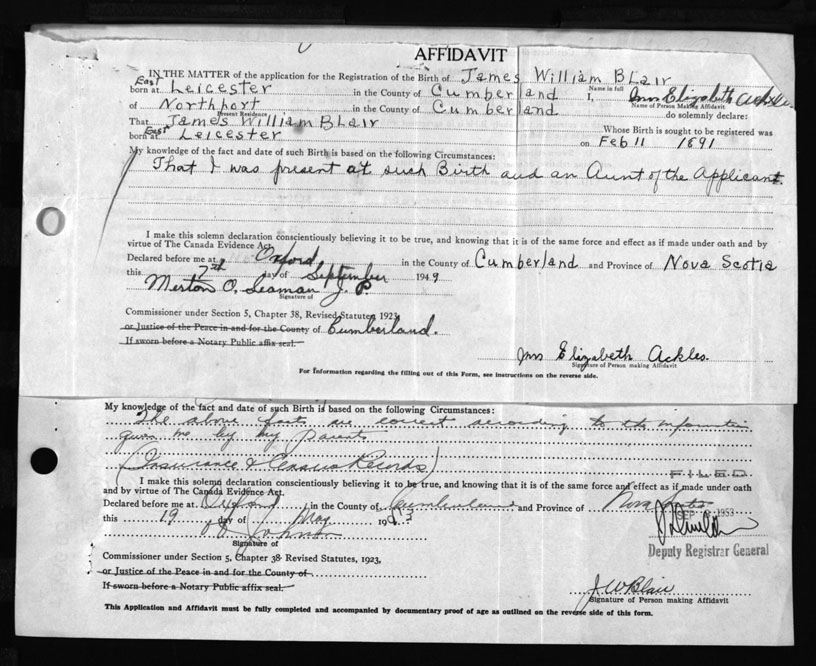 AFFIDAVIT
IN THE MATTER of the application for the Registration of the Birth of James William Blair
Name in full
born at East Leicester in the County of Cumberland I, Mrs Elizabeth Ackles
Name of Person Making Affidavit
of Northport in the County of Cumberland do solemnly declare:
Present Residence
That James William Blair Whose Birth is sought to be registered was
born at East Leicester on Feb 11 1891
My knowledge of the fact and date of such Birth is based on the following Circumstances:
That I was present at such Birth and an Aunt of the Applicant.
I make this solemn declaration conscientiously believing it to be true, and knowing that it is of the same force and effect as if made under oath and by
virtue of The Canada Evidence Act.
Declared before me at Oxford in the County of Cumberland and Province of Nova Scotia
this 7th day of September 1949
Merton O. Seaman J. P.
Signature of
Commissioner under Section 5, Chapter 38, Revised Statutes, 1923,
or Justice of the Peace in and for the County of Cumberland.
If sworn before a Notary Public affix seal.
Mrs Elizabeth Ackles.
Signature of Person making Affidavit
For information regarding the filling out of this Form, see instructions on the reverse side.
My knowledge of the fact and date of such Birth is based on the following Circumstances:
The above facts are correct according to the information
given me by my parents
(Insurance & Census Records)
FILED
I make this solemn declaration conscientiously believing it to be true, and knowing that it is of the same force and effect as if made under oath
and by virtue of The Canada Evidence Act.
Declared before me at Oxford in the County of Cumberland and Province of Nova Scotia
SEP 1953
this 19 day of May 1953
Johnson
Signature of
Deputy Registrar General
Commissioner under Section 5, Chapter 38 Revised Statutes, 1923,
or Justice of the Peace in and for the County of
If sworn before a Notary Public affix seal.
J W Blair
Signature of Person making Affidavit
This Application and Affidavit must be fully completed and accompanied by documentary proof of age as outlined on the reverse side of this form.